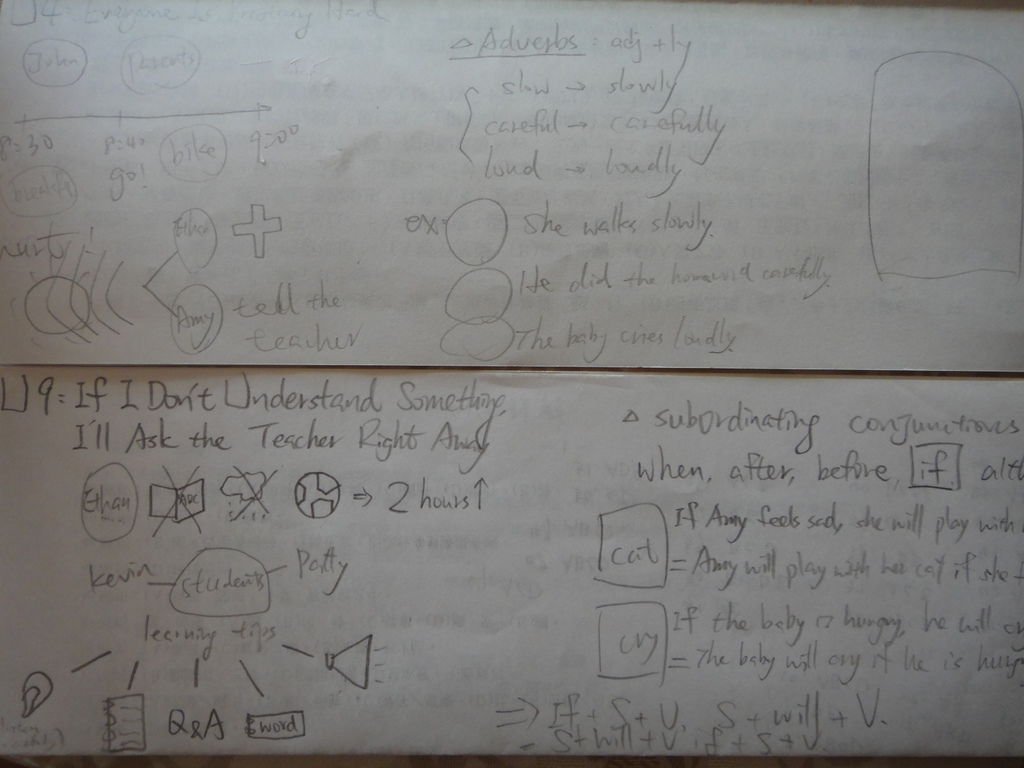 U4: Everyone Is Hard
John parents
△ Adverbs : adj + ly
slow → slowly
careful → carefully
loud → loudly
8:30 8:40 bike 9:00
go!
ex: She walks slowly.
He did the carefully.
The baby cries loudly.
Amy tell the
teacher
U9: If I Don't Understand Something,
I'll Ask the Teacher Right Away
Ethan ABC ⇒ 2 hours↑
Kevin students Patty
learning tips
Q&A word
△ subordinating conjunctions
when, after, before, if, alt
cat
If Amy feels sad, she will play with
= Amy will play with her cat if she f
cry
If the baby is hungry, he will cry
= The baby will cry if he is hung
⇒ If + S + V, S + will + V.
= S + will + V, if + S + V.